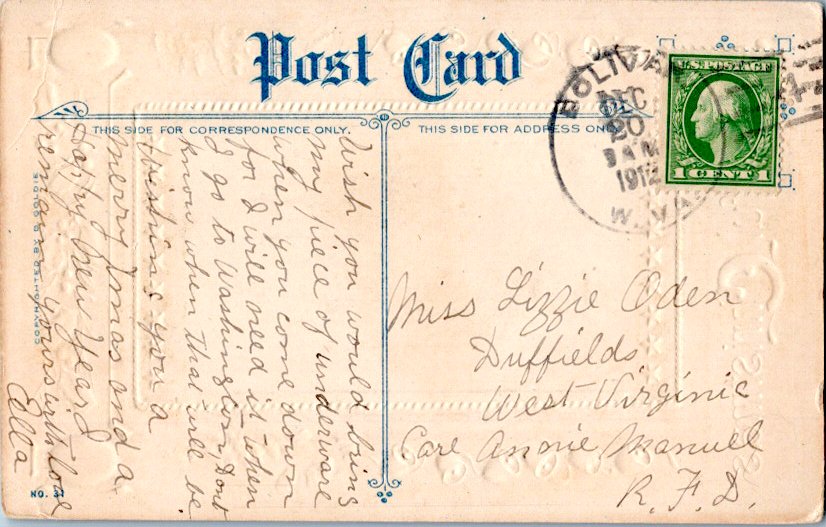 Post Card
THIS SIDE FOR CORRESPONDENCE ONLY.
THIS SIDE FOR ADDRESS ONLY
BOLIVAR
DEC
20
AM
1912
W. VA.
U.S. POSTAGE
1 CENT 1
Wish you would bring
my piece of underware
when you come down
for I will need it when
I go to Washington, Dont
know when that will be
Wishing you a
merry Xmas and a
Happy New Year I
remain yours with love
Ella
Miss Lizzie Oden
Duffields
West Virginia
Care Annie Manuel
R. F. D.
COPYRIGHTED BY S. GOLDIE
NO. 31